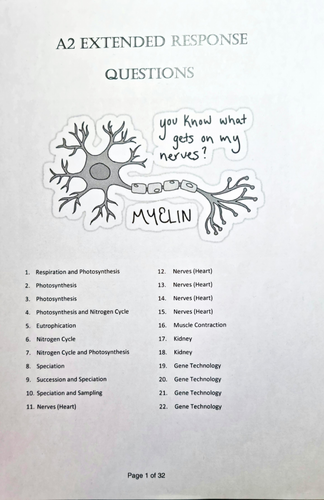 A2 EXTENDED RESPONSE
QUESTIONS
you know what
gets on my
nerves?
MYELIN
1. Respiration and Photosynthesis
2. Photosynthesis
3. Photosynthesis
4. Photosynthesis and Nitrogen Cycle
5. Eutrophication
6. Nitrogen Cycle
7. Nitrogen Cycle and Photosynthesis
8. Speciation
9. Succession and Speciation
10. Speciation and Sampling
11. Nerves (Heart)
12. Nerves (Heart)
13. Nerves (Heart)
14. Nerves (Heart)
15. Nerves (Heart)
16. Muscle Contraction
17. Kidney
18. Kidney
19. Gene Technology
20. Gene Technology
21. Gene Technology
22. Gene Technology
Page 1 of 32